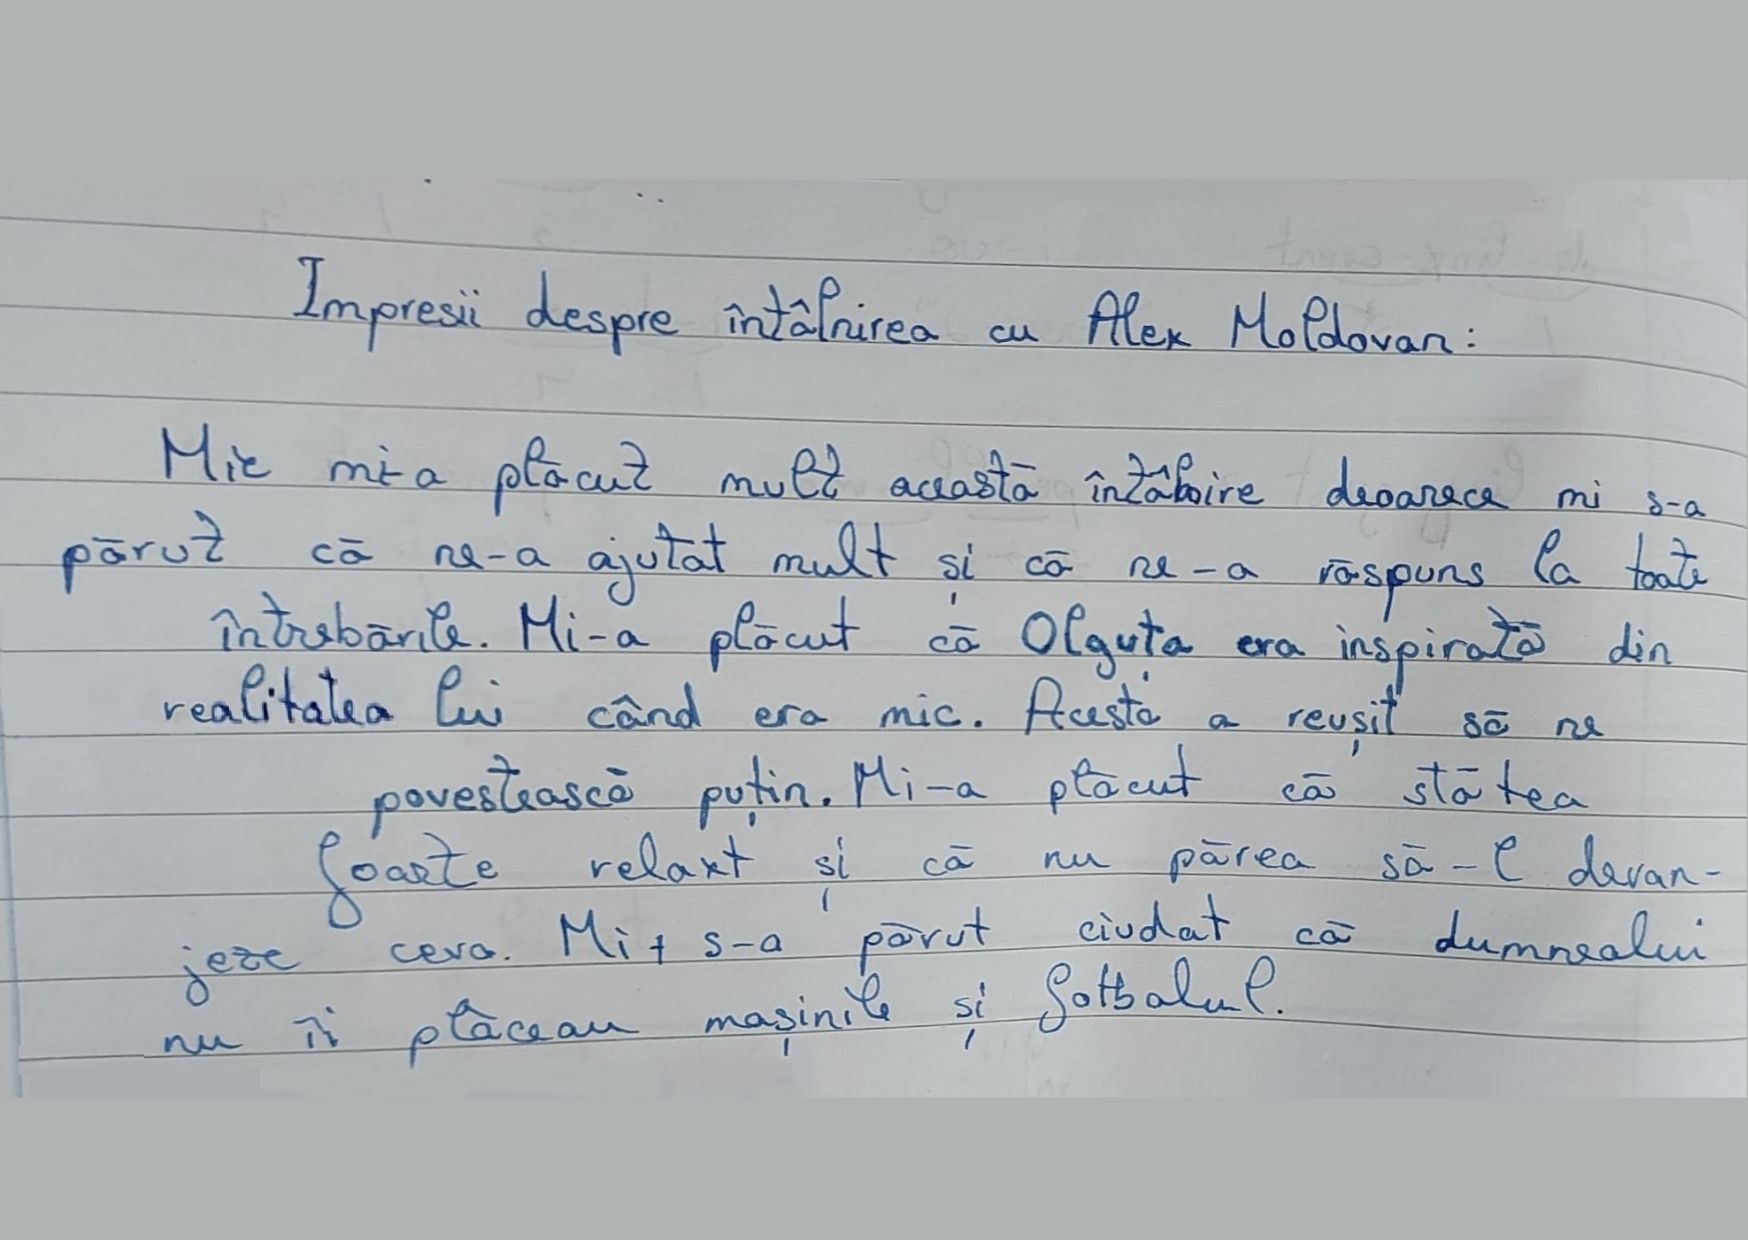 Impresii despre întâlnirea cu Alex Moldovan:
Mie mi-a plăcut mult această întâlnire deoarece mi s-a
părut că ne-a ajutat mult și că ne-a răspuns la toate
întrebările. Mi-a plăcut că Olguța era inspirată din
realitatea lui când era mic. Acesta a reușit să ne
povestească puțin. Mi-a plăcut că stătea
foarte relaxt și că nu părea să-l devan-
jeze ceva. Mi s-a părut ciudat că dumnealui
nu îi plăceau mașinile și fotbalul.